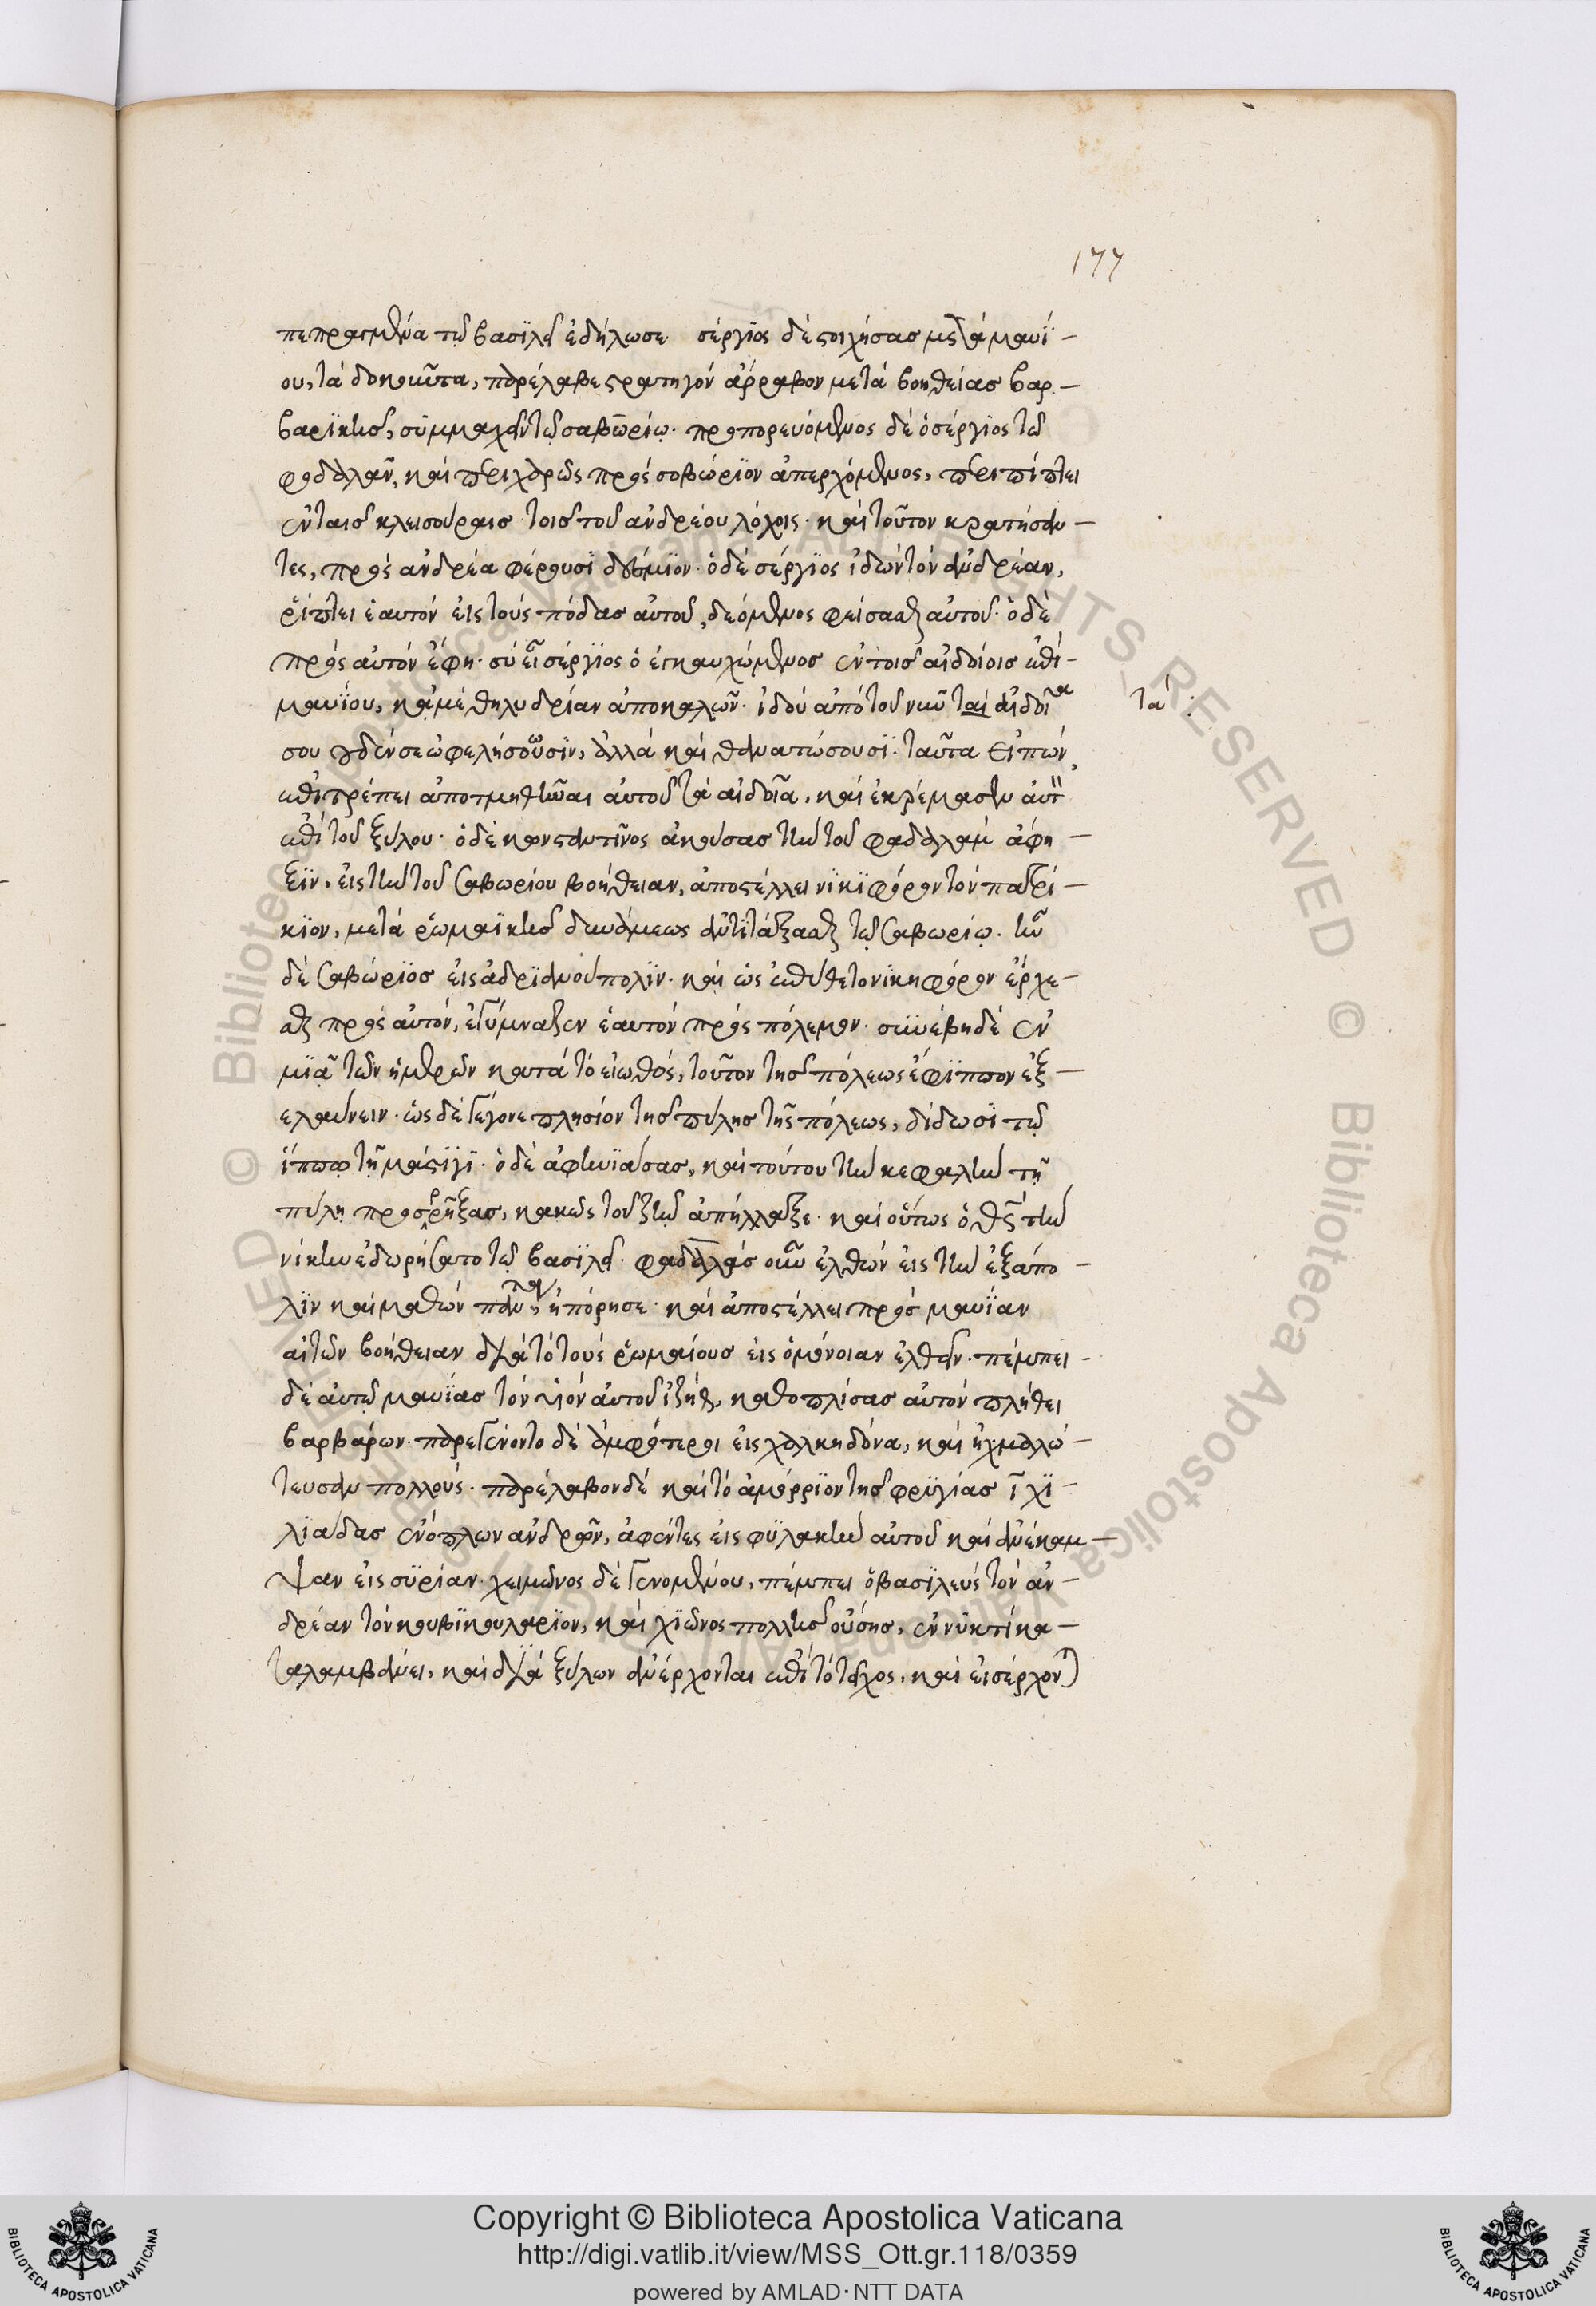 177
πεπραγμένα τῷ βασϊλεῖ ἐδήλωσε σέργϊος δὲ στοιχήσας μετὰ μαυΐ-
ου, τὰ δοκοῦντα, παρέλαβε στρατηγόν ἀρραβον μετὰ βοηθείας βαρ-
βαρϊκῆς, συμμαχεῖν τῷ σαβωρίῳ. προπορευόμενος δὲ ὁ σέργϊος τῷ
φαδαλᾶν, καὶ περιχαρῶς πρὸς σαβώρϊον ἀπερχόμενος, περιπίπτει
ἐν ταῖς κλεισούραις τοῖς τοῦ ἀνδρέου λόχοις. καὶ τοῦτον κρατήσαν-
τες, πρὸς ἀνδρέα φέρουσϊ δέσμϊον. ὁ δὲ σέργϊος ἰδὼν τὸν ἀνδρέαν,
ῥίπτει ἑαυτόν εἰς τοὺς πόδας αὐτοῦ, δεόμενος φείσασθαι αὐτοῦ. ὁ δὲ
πρὸς αὐτόν ἔφη. σὺ εἶ σέργϊος ὁ ἐγκαυχώμενος ἐν τοῖς αἰδοίοις ἐπὶ-
μαυΐου, κἀμὲ θηλυδρίαν ἀποκαλῶν. ἰδοὺ ἀπὸ τοῦ νῦν ταὶ αἰδοῖα
τὰ :
σου οὐδέν σε ὠφελήσουσϊν, ἀλλὰ καὶ θανατώσουσϊ. ταῦτα εἰπών,
ἐπιτρέπει ἀποτμηθῆναι αὐτοῦ τὰ αἰδοῖα, καὶ ἐκρέμασεν αὐτὰ
ἐπὶ τοῦ ξύλου. ὁ δὲ κωνσταντῖνος ἀκούσας τὴν τοῦ φαδαλαμ ἄφη-
ξϊν, εἰς τὴν τοῦ σαβωρίου βοήθειαν, ἀποστέλλει νϊκϊφόρον τὸν πατρί-
κϊον, μετὰ ῥωμαϊκῆς δυνάμεως ἀντϊτάξασθαι τῷ σαβωρίῳ. ἦν
δὲ σαβώρϊος εἰς ἀδρϊανούπολϊν. καὶ ὡς ἐπύθετο νϊκηφόρον ἔρχε-
σθαι πρὸς αὐτόν, ἐγύμναζεν ἑαυτόν πρὸς πόλεμον. συνέβη δὲ ἐν
μϊᾷ τῶν ἡμερῶν κατὰ τὸ εἰωθός, τοῦτον τῆς πόλεως ἐφϊππον ἐξ-
ελαύνειν. ὡς δὲ γέγονε πλησίον τῆς πύλης τῆς πόλεως, δίδωσϊ τῷ
ἵππῳ τῇ μάστϊγϊ. ὁ δὲ ἀφηνϊάσας, καὶ τούτου τὴν κεφαλὴν τῇ
πύλῃ προσρήξας, κακῶς τοῦ ζῆν ἀπήλλαξε. καὶ οὕτως ὁ θς τὴν
νίκην ἐδωρήσατο τῷ βασϊλεῖ. φαδαλάς οὖν ἐλθὼν εἰς τὴν ἑξάπο-
λϊν καὶ μαθὼν πάντα, ἠπόρησε. καὶ ἀποστέλλει πρὸς μαυΐαν
αἰτῶν βοήθειαν διὰ τὸ τοὺς ῥωμαίους εἰς ὁμόνοιαν ἐλθεῖν. πέμπει-
δὲ αὐτῷ μαυΐας τὸν υἱὸν αὐτοῦ ἰζήθ, καθοπλίσας αὐτὸν πλήθει
βαρβάρων. παρεγένοντο δὲ ἀμφότεροι εἰς χαλκηδόνα, καὶ ᾐχμαλώ-
τευσαν πολλούς. παρέλαβον δὲ καὶ τὸ ἀμόρρϊον τῆς φρυγίας ῑ χϊ-
λϊάδας ἐνόπλων ἀνδρῶν, ἀφέντες εἰς φϋλακὴν αὐτοῦ καὶ ἀνέκαμ-
ψαν εἰς συρίαν. χειμῶνος δὲ γενομένου, πέμπει ὁ βασϊλεὺς τὸν ἀν-
δρέαν τὸν κουβϊκουλαρϊον, καὶ χϊόνος πολλῆς οὔσης, ἐν νυκτὶ κα-
ταλαμβάνει, καὶ διὰ ξύλων ἀνέρχονται ἐπὶ τὸ τεῖχος, καὶ εἰσέρχοντ(αι)